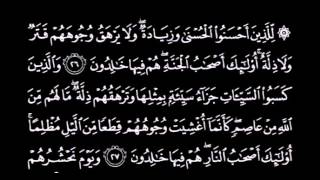 ۞ لِّلَّذِينَ أَحْسَنُوا۟ ٱلْحُسْنَىٰ وَزِيَادَةٌ ۖ وَلَا يَرْهَقُ وُجُوهَهُمْ قَتَرٌ
وَلَا ذِلَّةٌ ۚ أُو۟لَـٰٓئِكَ أَصْحَـٰبُ ٱلْجَنَّةِ ۖ هُمْ فِيهَا خَـٰلِدُونَ ٢٦ وَٱلَّذِينَ
كَسَبُوا۟ ٱلسَّيِّـَٔاتِ جَزَآءُ سَيِّئَةٍۭ بِمِثْلِهَا وَتَرْهَقُهُمْ ذِلَّةٌ ۖ مَّا لَهُم مِّنَ
ٱللَّهِ مِنْ عَاصِمٍ ۖ كَأَنَّمَآ أُغْشِيَتْ وُجُوهُهُمْ قِطَعًا مِّنَ ٱلَّيْلِ مُظْلِمًا ۚ
أُو۟لَـٰٓئِكَ أَصْحَـٰبُ ٱلنَّارِ ۖ هُمْ فِيهَا خَـٰلِدُونَ ٢٧ وَيَوْمَ نَحْشُرُهُمْ